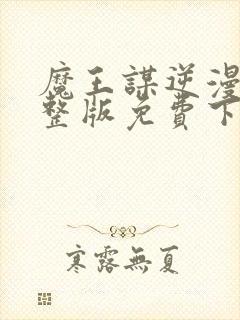 魔王謀逆漫
整版免費下
寒露無夏